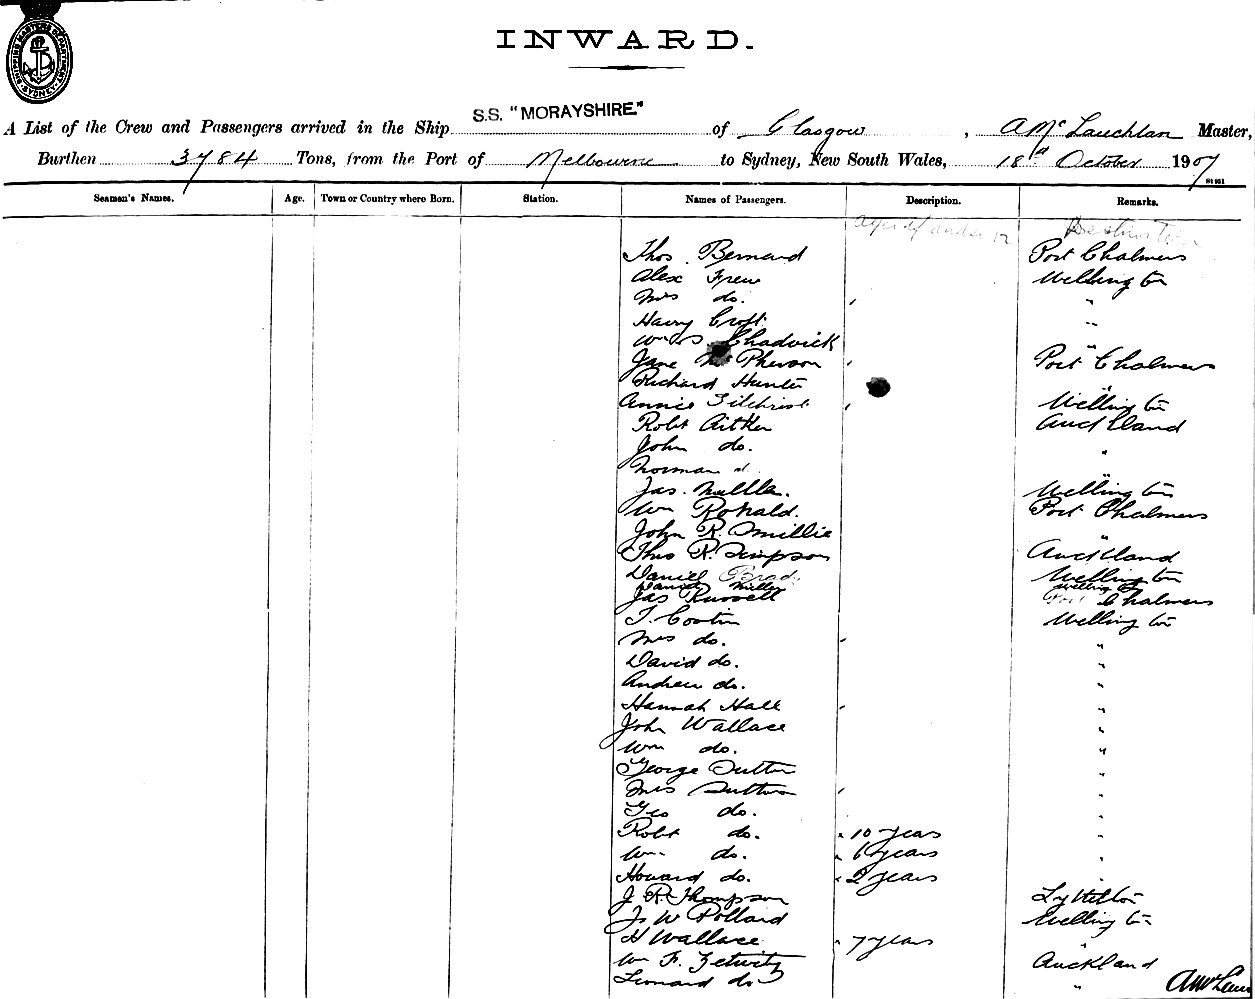 INWARD.
SHIPPING MASTERS DEPARTMENT SYDNEY
A List of the Crew and Passengers arrived in the Ship S.S. "MORAYSHIRE." of Glasgow, A McLauchlan Master,
Burthen 3784 Tons, from the Port of Melbourne to Sydney, New South Wales, 18th October 1907
Seamen's Names. Age. Town or Country where Born. Station. Names of Passengers. Description. Remarks.
Ages if under 12 Destination
Thos. Bernard Port Chalmers
Alex Frew Wellington
Mrs do. "
Harry Croft "
Chadwick "
Jane McPherson Port Chalmers
Richard Hunter "
Annie Gilchrist Wellington
Robt Aitken Auckland
John do. "
Norman d. "
Jas. Wellington
Wm Ronald. Port Chalmers
John R. Smillie "
Thos R. Simpson Auckland
Daniel Brady Wellington
Daniel Miller Wellington
Jas Russell Port Chalmers
T. Costin Wellington
Mrs do. "
David do. "
Andrew do. "
Hannah Hall "
John Wallace "
Wm do. "
George Sutton "
Mrs Sutton "
Geo do. "
Robt do. 10 years "
Wm do. 6 years "
Howard do. 2 years "
J. R. Thompson Lyttelton
W Pollard Wellington
H Wallace 7 years "
Wm F. Auckland
Leonard do "